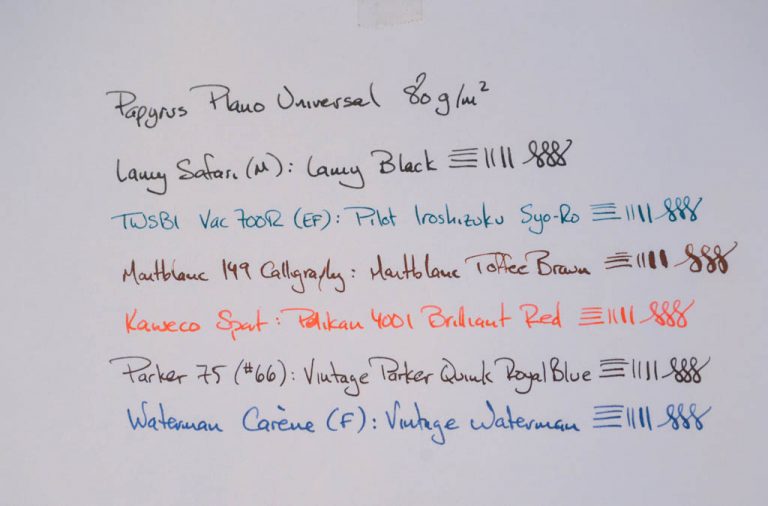 Papyrus Plano Universal 80 g/m²
Lamy Safari (M): Lamy Black
TWSBI Vac 700R (EF): Pilot Iroshizuku Syo-Ro
Montblanc 149 Calligraphy: Montblanc Toffee Brown
Kaweco Sport: Pelikan 4001 Brilliant Red
Parker 75 (#66): Vintage Parker Quink Royal Blue
Waterman Carène (F): Vintage Waterman